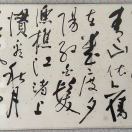 青山依舊
在幾度夕
陽紅白髮
漁樵江渚上
慣看秋月